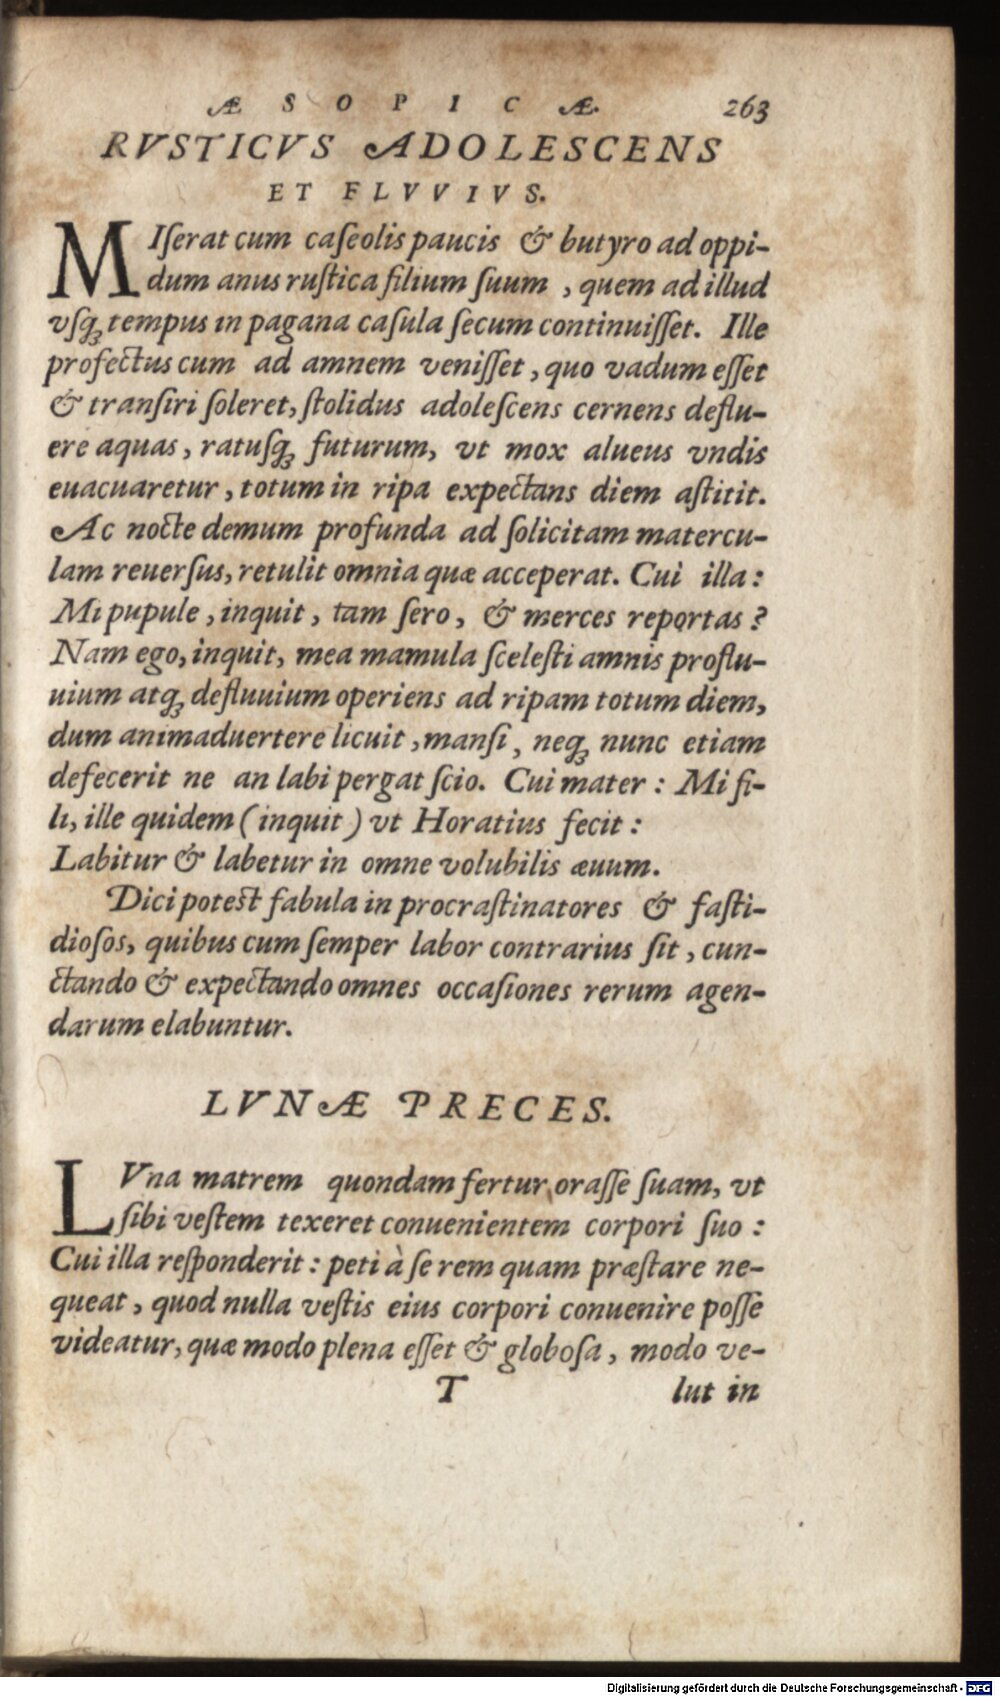 ÆSOPICÆ. 263
RVSTICVS ADOLESCENS
ET FLVVIVS.
MIſerat cum caſeolis paucis & butyro ad oppi-
dum anus ruſtica filium ſuum, quem ad illud
vſq́ꝫ tempus in pagana caſula ſecum continuiſſet. Ille
profectus cum ad amnem veniſſet, quo vadum eſſet
& tranſiri ſoleret, ſtolidus adoleſcens cernens deflu-
ere aquas, ratuſqꝫ futurum, vt mox alueus vndis
euacuaretur, totum in ripa expectans diem aſtitit.
Ac nocte demum profunda ad ſolicitam matercu-
lam reuerſus, retulit omnia quæ acceperat. Cui illa:
Mi pupule, inquit, tam ſero, & merces reportas?
Nam ego, inquit, mea mamula ſceleſti amnis proflu-
uium atqꝫ defluuium operiens ad ripam totum diem,
dum animaduertere licuit, manſi, neqꝫ nunc etiam
defecerit ne an labi pergat ſcio. Cui mater: Mi fi-
li, ille quidem (inquit) vt Horatius fecit:
Labitur & labetur in omne volubilis æuum.
Dici poteſt fabula in procraſtinatores & faſti-
dioſos, quibus cum ſemper labor contrarius ſit, cun-
ctando & expectando omnes occaſiones rerum agen-
darum elabuntur.
LVNÆ PRECES.
LVna matrem quondam fertur oraſſe ſuam, vt
ſibi veſtem texeret conuenientem corpori ſuo:
Cui illa reſponderit: peti à ſe rem quam præſtare ne-
queat, quod nulla veſtis eius corpori conuenire poſſe
videatur, quæ modo plena eſſet & globoſa, modo ve-
T lut in
Digitalisierung gefördert durch die Deutsche Forschungsgemeinschaft - DFG